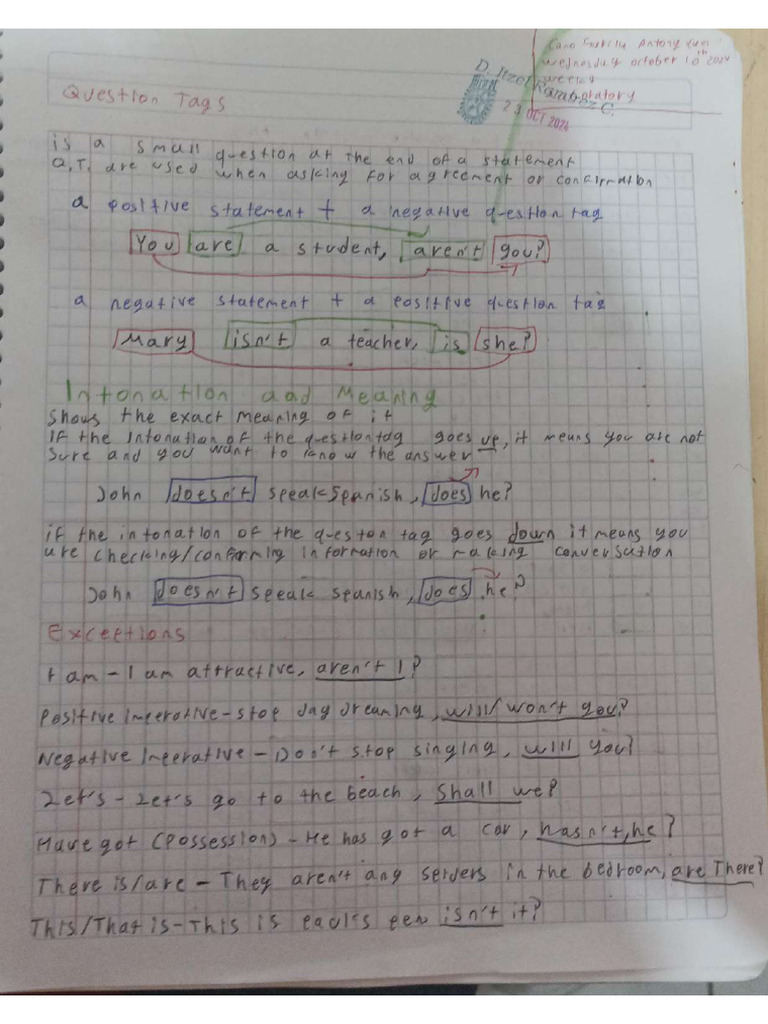 wednesday october 10th 2024
weekly
oratory
D. Itzel Ramirez C.
23 OCT 2024
Question Tags
is a small question at the end of a statement
Q.T. are used when asking for agreement or confirmation
a positive statement + a negative question tag
You are a student, aren't you?
a negative statement + a positive question tag
Mary isn't a teacher, is she?
Intonation and Meaning
shows the exact meaning of it
if the Intonation of the questiontag goes up, it means you are not
sure and you want to know the answer
John doesn't speak Spanish, does he?
if the intonation of the queston tag goes down it means you
are checking/confirming information or making conversation
John doesn't speak spanish, does he?
Exceptions
I am - I am attractive, aren't I?
Positive imperative - stop daydreaming, will/won't you?
Negative imperative - Don't stop singing, will you?
Let's - Let's go to the beach, shall we?
Have got (possession) - He has got a car, hasn't, he?
There is/are - They aren't any spiders in the bedroom, are There?
This/That is - This is paul's pen isn't it?